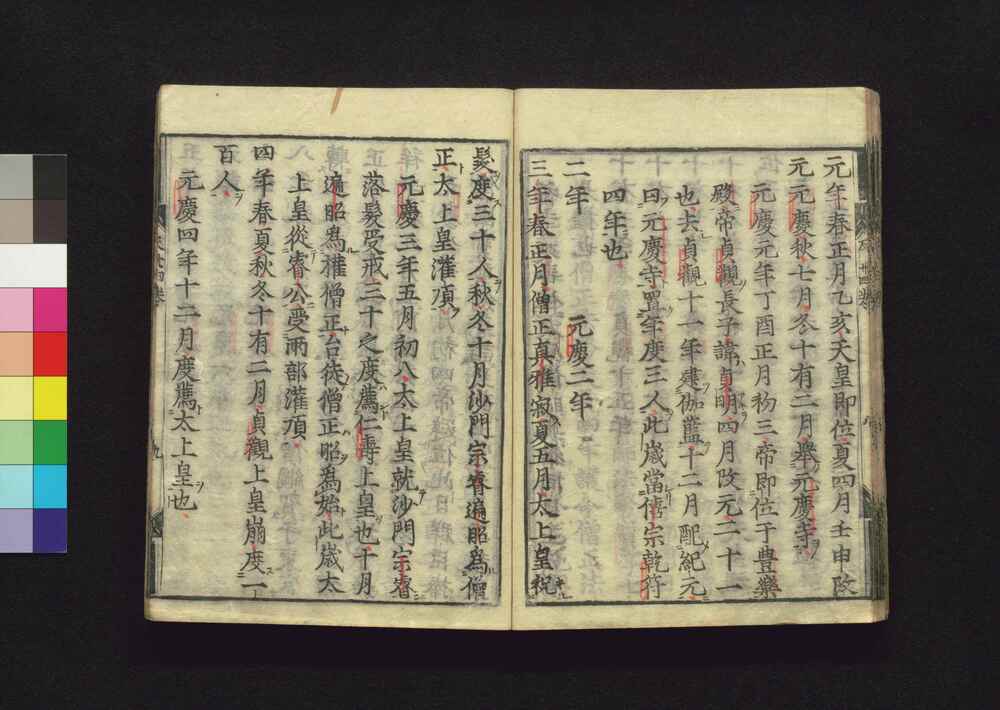 元年春正月乙亥天皇即位夏四月壬申改
元元慶秋七月冬十有二月舉元慶寺
元慶元年丁酉正月初三帝即位于豊樂
殿帝貞觀長子諱貞明四月改元二十一
也去貞觀十一年建伽藍十二月配紀元
曰元慶寺置年度三人此歲當僖宗乾符
四年也
二年 元慶二年
三年春正月僧正真雅寂夏五月太上皇祝
髮度三十人秋冬十月沙門宗睿遍昭為僧
正太上皇灌頂
元慶三年五月初八太上皇就沙門宗睿
落髮受戒三十之度薦仁壽上皇也十月
遍昭為權僧正台徒僧正昭為始此歲太
上皇從睿公受兩部灌頂
四年春夏秋冬十有二月貞觀上皇崩度一
百人
元慶四年十二月度薦太上皇也